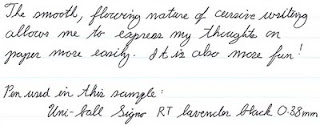 The smooth, flowing nature of cursive writing
allows me to express my thoughts on
paper more easily. It is also more fun!
Pen used in this sample:
Uni-ball Signo RT lavender black 0.38mm